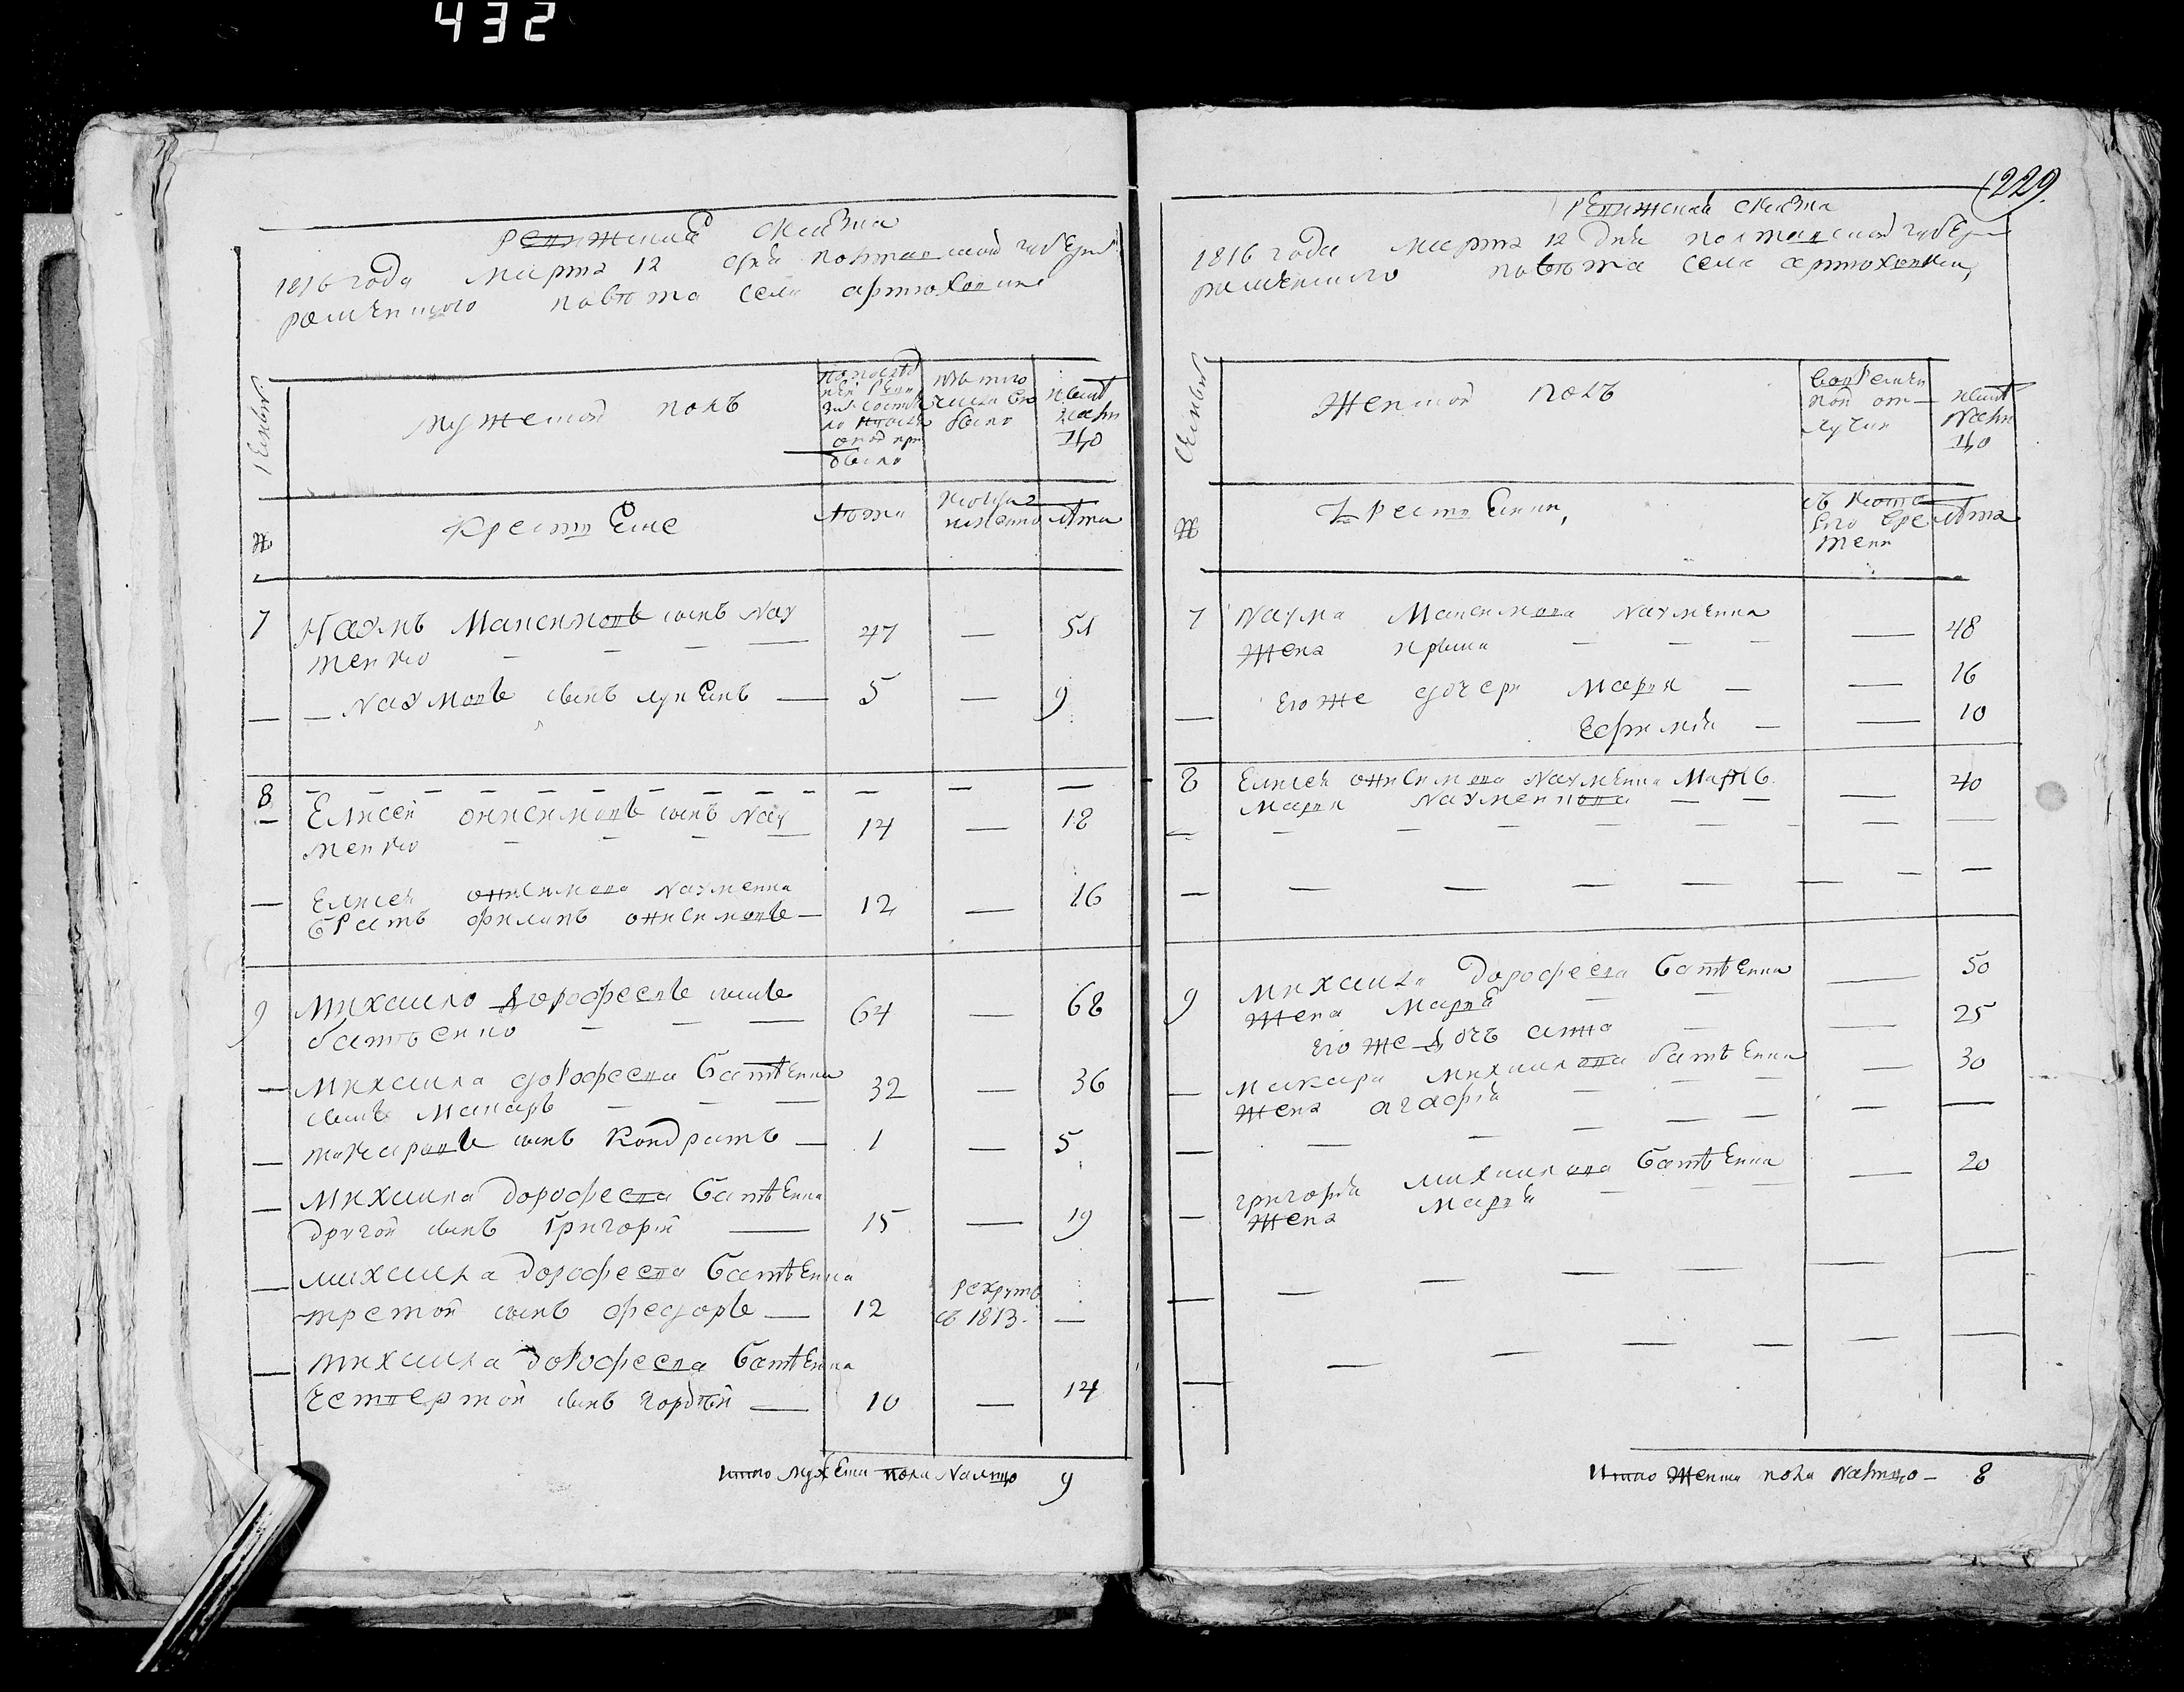 432
Ревижская скаска
1816 года марта 12 дня полтавской губерн
роменского повета села артюховки
семьи
мужеской полъ
по послед
ней реви
зии состоя
ло и после
оной при
было
изъ того
числа вы
было
ныне
на ли
цо
№
Крестьяне
лета
когда
именно
лета
7 Наумъ Максимовъ сынъ Нау 47 — 51
менко
— Наумовъ сынъ лукьянъ — 5 — 9
8 Елисей онисимовъ сынъ Нау 14 — 18
менко
— Елисея онисимова Науменка
братъ филипъ онисимовъ — 12 — 16
9 михаило дорофеевъ сынъ 64 — 68
батвенко
— михаила дорофеева батѣенка 32 — 36
сынъ макаръ
— макаровъ сынъ Кондратъ — 1 — 5
— михаила дорофеева батѣенка
другой сынъ григорий — 15 — 19
— михаила дорофеева батѣенка рекрутъ
третой сынъ федоръ — 12 въ 1813. —
— михаила дорофеева батѣенка
четвертой сынъ гордѣй — 10 — 14
Итого мужеска пола Налицо 9
229.
Ревижская скаска
1816 года марта 12 дня полтавской губерн
роменского повета села артюховки,
семьи
Женской полъ
во времен
ной от-
лучки
ныне
Нали
цо
№
Крестьянки,
съ кото
рого вре
мени
лета
7 Наума Максимова Науменка — 48
жена ирина
его же дочери мария — — 16
Ефимия — — 10
8 Елисея онисимова Науменка мать 40
мария Науменкова
9 михаила дорофеева батѣенка — 50
жена мария
его же дочь анна — 25
макара михаилова батѣенка — 30
жена агафия
григория михаилова батѣенка — 20
жена мария
Итого женска пола Налицо — 8